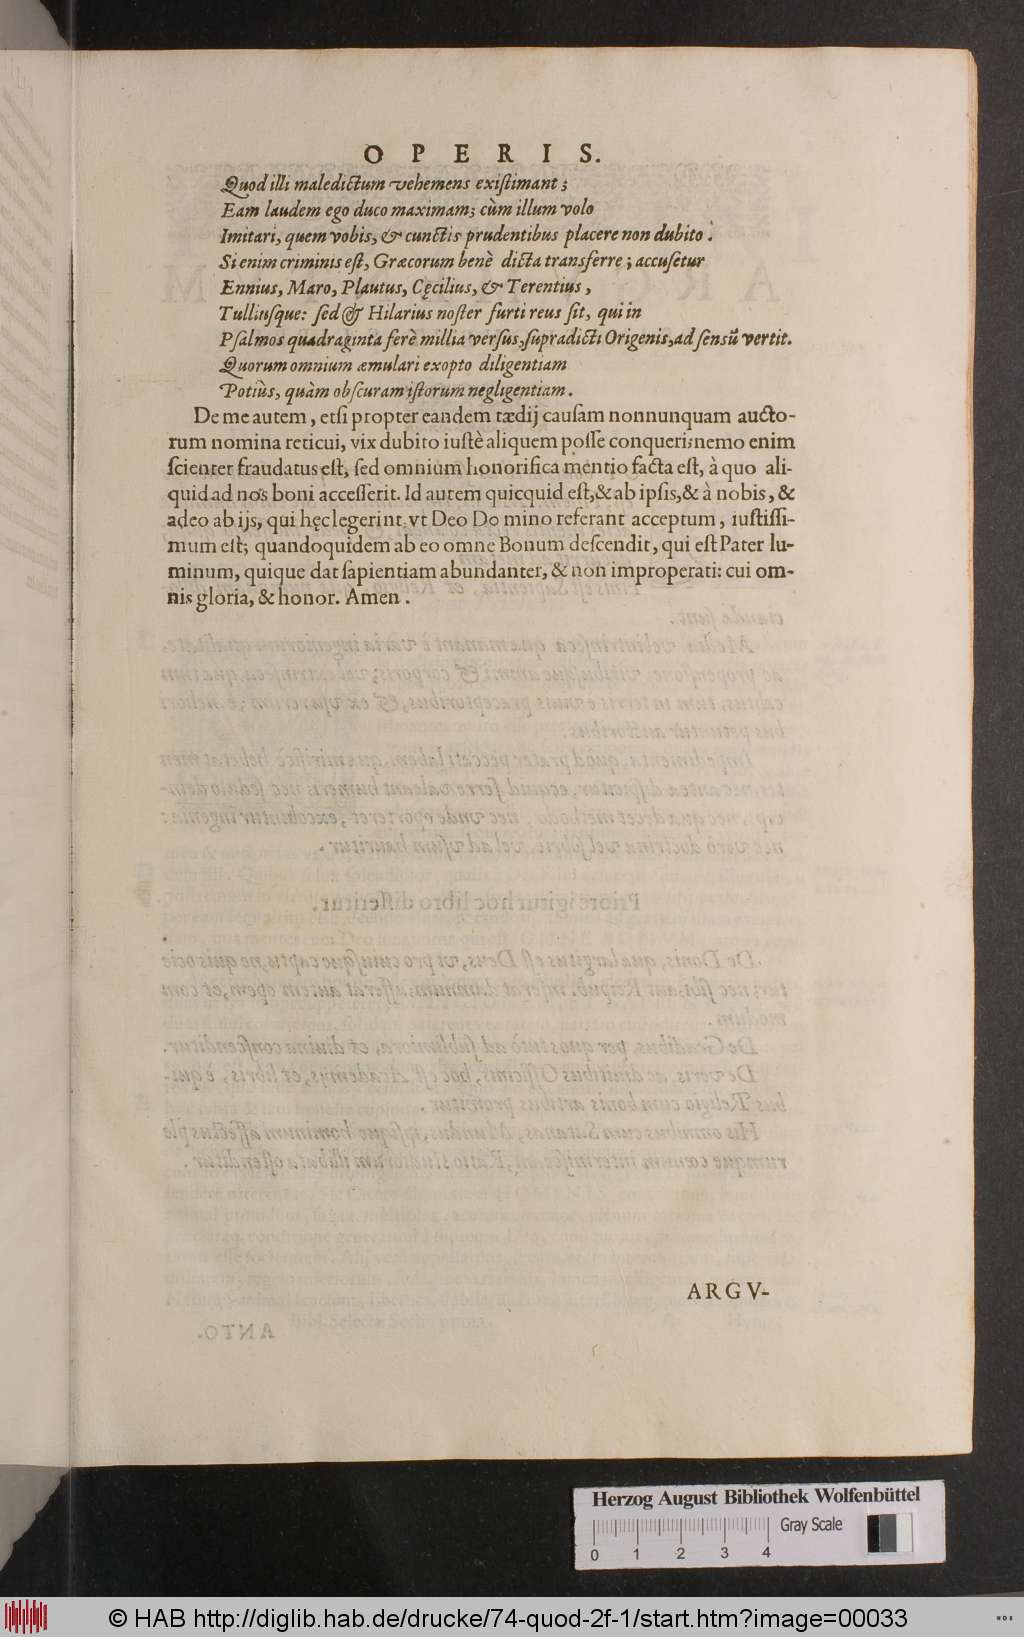 OPERIS.
Quod illi maledictum vehemens exiſtimant;
Eam laudem ego duco maximam; cùm illum volo
Imitari, quem vobis, & cunctis prudentibus placere non dubito.
Si enim criminis eſt, Græcorum benè dicta transferre; accuſetur
Ennius, Maro, Plautus, Cęcilius, & Terentius,
Tulliuſque: ſed & Hilarius noſter furti reus ſit, qui in
Pſalmos quadraginta ferè millia verſus, ſupradicti Origenis, ad ſensū vertit.
Quorum omnium æmulari exopto diligentiam
Potiùs, quàm obſcuram iſtorum negligentiam.
De me autem, etſi propter eandem tædij cauſam nonnunquam aucto-
rum nomina reticui, vix dubito iuſtè aliquem poſſe conqueri; nemo enim
ſcienter fraudatus eſt, ſed omnium honorifica mentio facta eſt, à quo ali-
quid ad nos boni acceſſerit. Id autem quicquid eſt, & ab ipſis, & à nobis, &
adeo ab ijs, qui hęc legerint, vt Deo Domino referant acceptum, iuſtiſſi-
mum eſt; quandoquidem ab eo omne Bonum deſcendit, qui eſt Pater lu-
minum, quique dat ſapientiam abundanter, & non improperati: cui om-
nis gloria, & honor. Amen.
ARGV-
Herzog August Bibliothek Wolfenbüttel
Gray Scale
0 1 2 3 4
© HAB http://diglib.hab.de/drucke/74-quod-2f-1/start.htm?image=00033